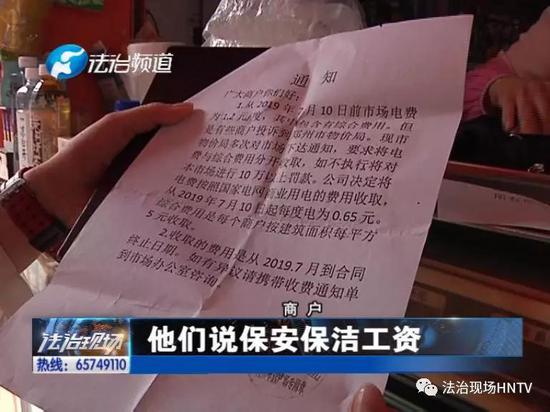 法治频道
通知
广大商户你们好：
1.从2019年7月10日前市场电费
为1.2元/度，其中包含有综合费用。但
是有些商户投诉到郑州市物价局。现市
物价局多次对市场下达通知，要求将电
费与综合费用分开收取，如不执行将对
本市场进行10万以上罚款。公司决定将
电费按照国家电网商业用电的费用收取，
从2019年7月10日起每度电为0.65元。
综合费用是每个商户按建筑面积每平方
5元收取。
2.收取的费用是从2019.7月到合同
终止日期。如有异议请携带收费通知单
到市场办公室咨询。
商户
法治现场
他们说保安保洁工资
热线：65749110
法治现场HNTV